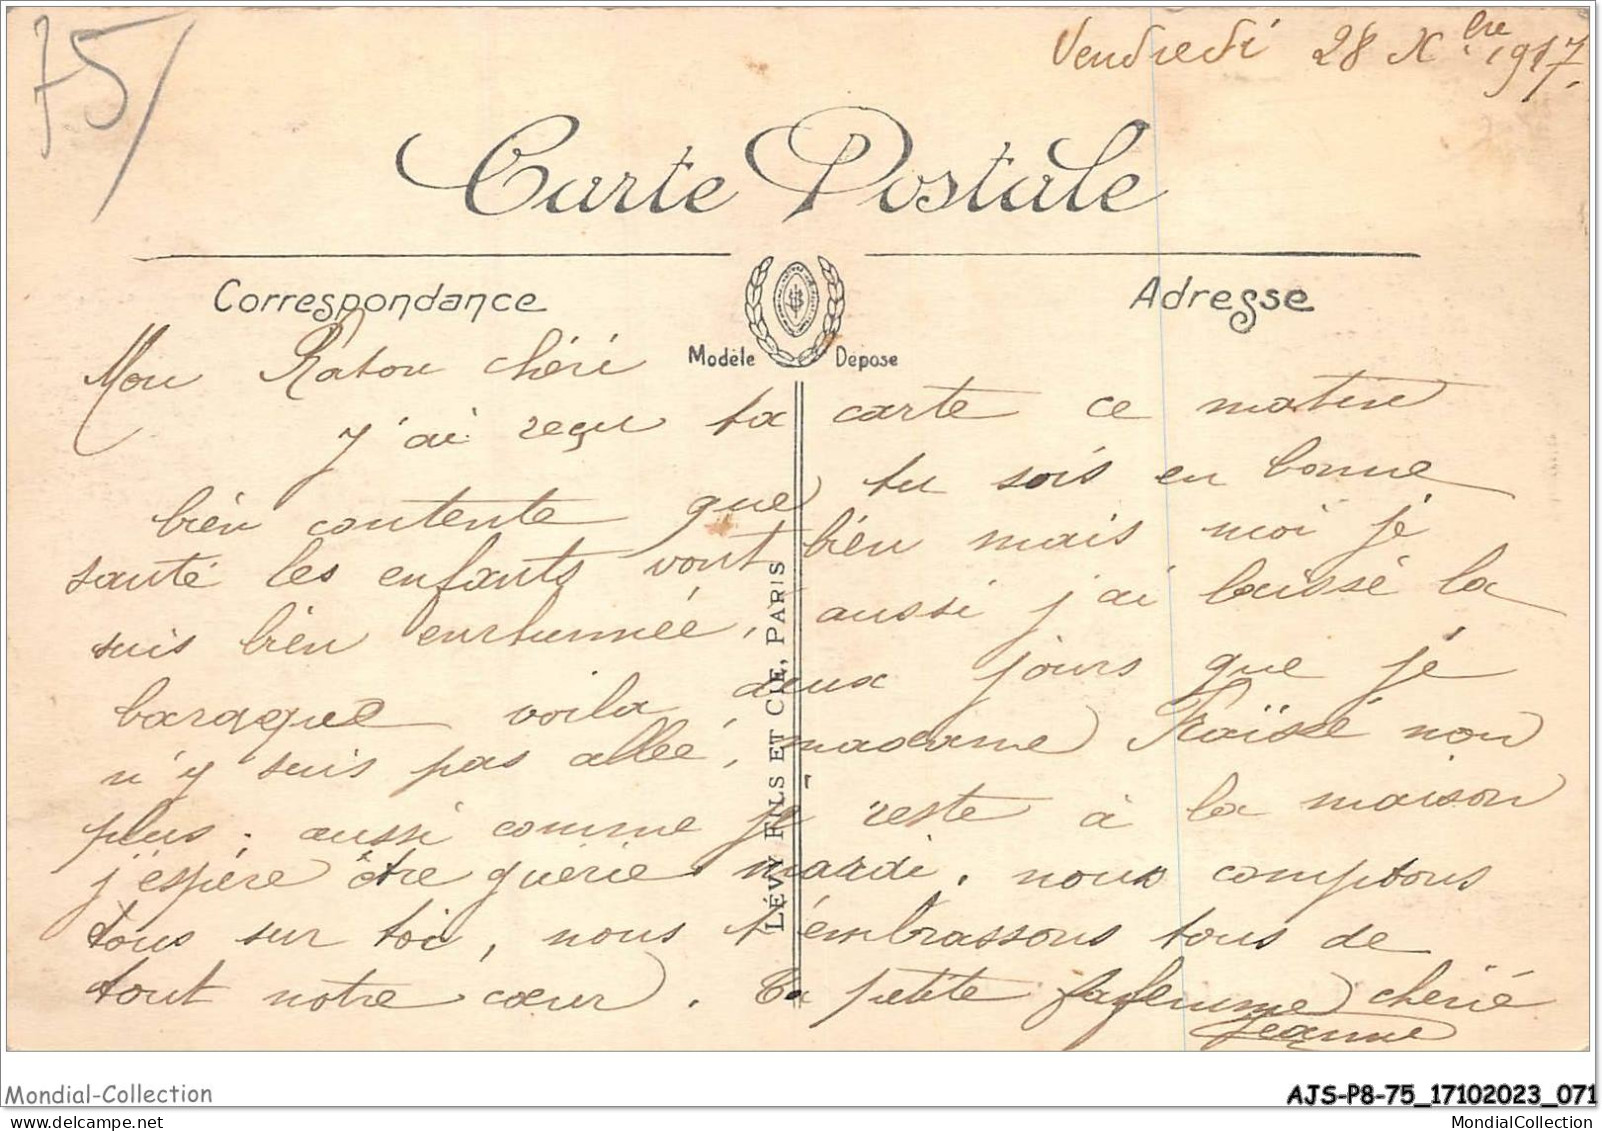 75
Vendredi 28 Xbre 1917.
Carte Postale
Correspondance
Adresse
Modèle Déposé
LÉVY FILS ET CIE, PARIS
Mon Raton chéri
j'ai reçu ta carte ce matin
bien contente que tu sois en bonne
santé les enfants vont bien mais moi je
suis bien enrhumée, aussi j'ai laissé la
baraque voila deux jours que je
n'y suis pas allée, madame non
plus, aussi comme je reste à la maison
j'espère être guérie mardi. nous comptons
tous sur toi, nous t'embrassons tous de
tout notre cœur. Ta petite femme chérie
Jeanne
Mondial-Collection
AJS-P8-75_17102023_071
MondialCollection